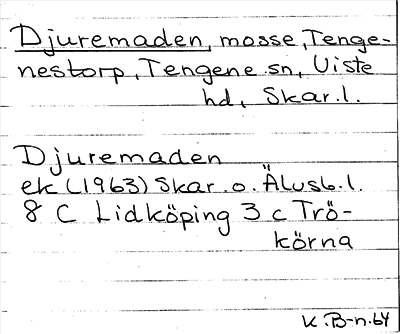 Djuremaden, mosse, Tenge-
nestorp, Tengene sn, Viste
hd, Skar.l.
Djuremaden
ek (1963) Skar. o. Älvsb. l.
8 C Lidköping 3 c Trö-
körna
K.B-n.64